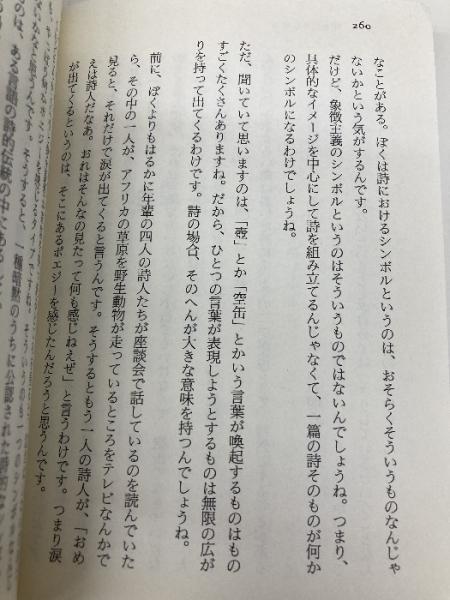 260
なことがある。ぼくは詩におけるシンボルというのは、おそらくそういうものなんじゃ
ないかという気がするんです。
だけど、象徴主義のシンボルというのはそういうものではないんでしょうね。つまり、
具体的なイメージを中心にして詩を組み立てるんじゃなくて、一篇の詩そのものが何か
のシンボルになるわけでしょうね。
ただ、聞いていて思いますのは、「壺」とか「空缶」とかいう言葉が喚起するものはもの
すごくたくさんありますね。だから、ひとつの言葉が表現しようとするものは無限の広が
りを持って出てくるわけです。詩の場合、そのへんが大きな意味を持つんでしょうね。
前に、ぼくよりもはるかに年輩の四人の詩人たちが座談会で話しているのを読んでいた
ら、その中の一人が、アフリカの草原を野生動物が走っているところをテレビなんかで
見ると、それだけで涙が出てくると言うんです。そうするともう一人の詩人が、「おめ
えは詩人だなあ。おれはそんなの見たって何も感じねえぜ」と言うわけです。つまり涙
が出てくるというのは、そこにあるポエジーを感じたんだろうと思うんです。
そうすると、一種暗黙のうちに公認された詩的な
のは、ある言語の詩的伝統の中である